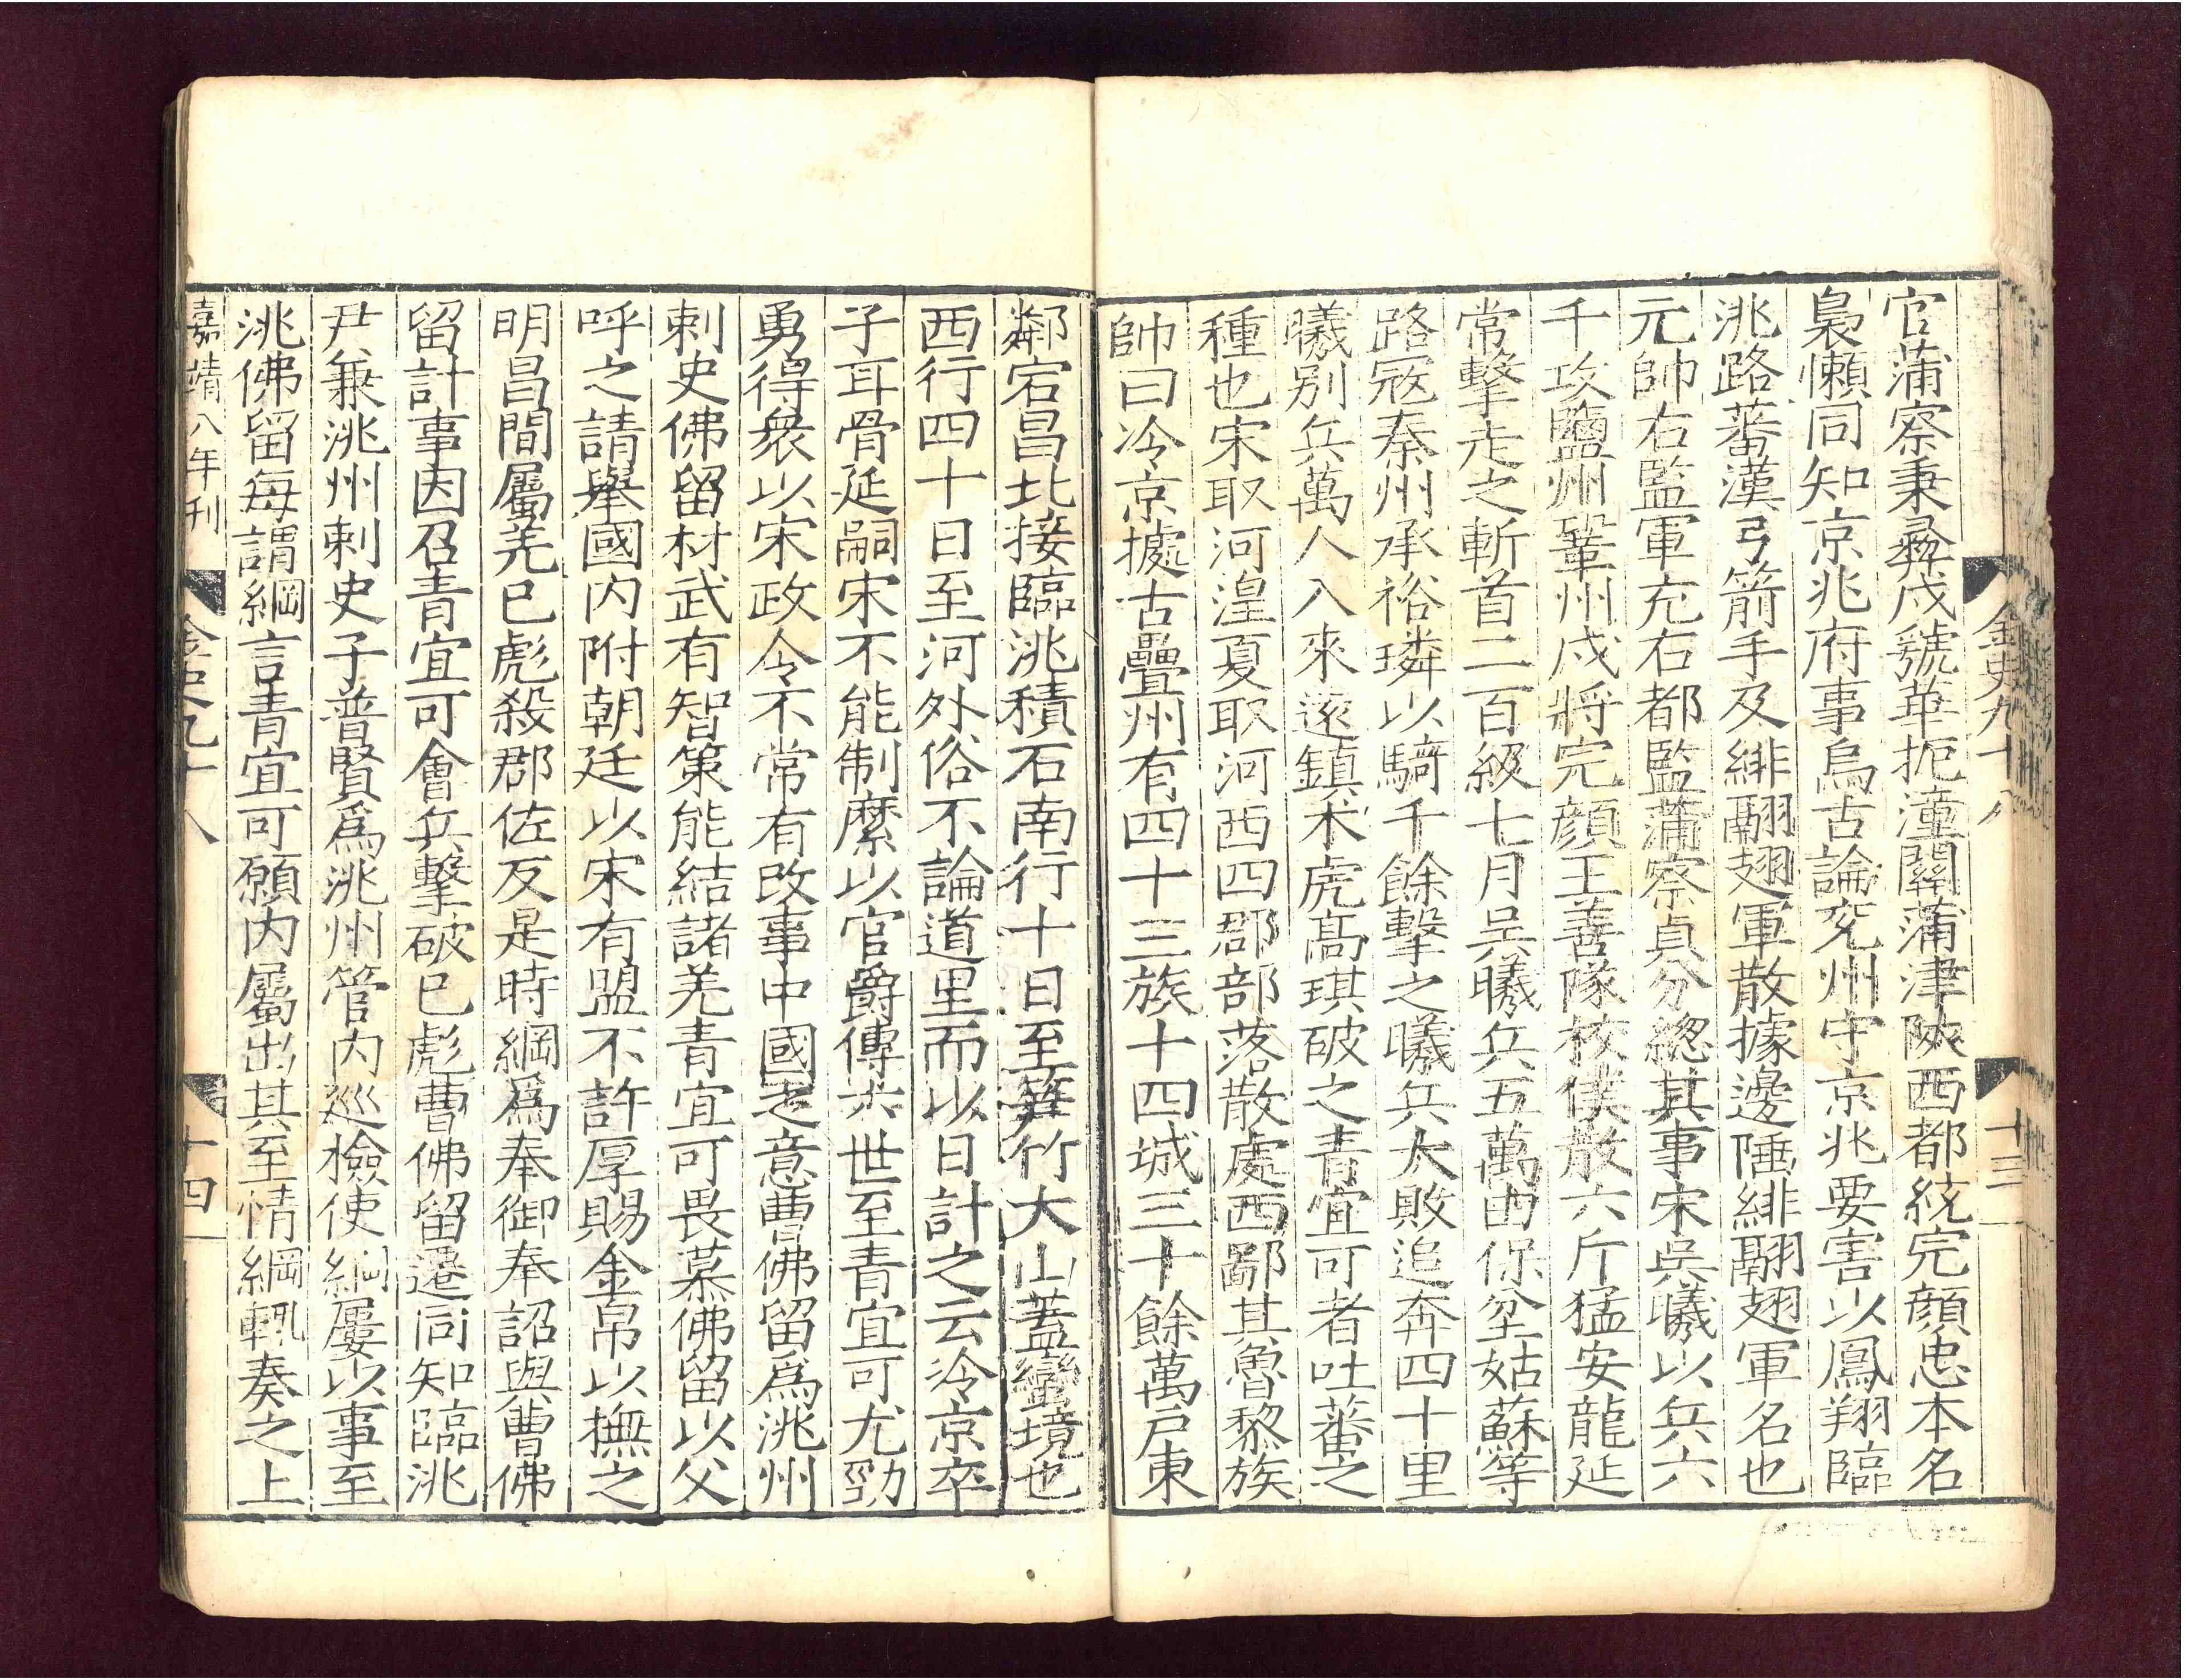 金史九十八
十三
官蒲察秉彝戍虢華扼潼關蒲津陜西都統完顏忠本名
裊懶同知京兆府事烏古論兖州守京兆要害以鳳翔臨
洮路蕃漢弓箭手及緋翮翅軍散據邊陲緋翮翅軍名也
元帥右監軍充右都監蒲察貞分總其事宋吳曦以兵六
千攻鹽州鞏州戍將完顏王善隊校僕散六斤猛安龍延
常擊走之斬首二百級七月吳曦兵五萬由保坌姑蘇等
路冦秦州承裕璘以騎千餘擊之曦兵大敗追奔四十里
曦别兵萬人入來遠鎮术虎高琪破之青宜可者吐蕃之
種也宋取河湟夏取河西四郡部落散處西鄙其魯黎族
帥曰冷京據古疊州有四十三族十四城三十餘萬戸東
鄰宕昌北接臨洮積石南行十日至筭竹大山蓋蠻境也
西行四十日至河外俗不論道里而以日計之云冷京卒
子耳骨延嗣宋不能制縻以官爵傳六世至青宜可尤勁
勇得衆以宋政令不常有改事中國之意曹佛留爲洮州
刺史佛留材武有智策能結諸羌青宜可畏慕佛留以父
呼之請舉國内附朝廷以宋有盟不許厚賜金帛以撫之
明昌間屬羌已彪殺郡佐反是時綱爲奉御奉詔與曹佛
留計事因召青宜可會兵擊破已彪曹佛留遷同知臨洮
尹兼洮州刺史子普賢爲洮州管内巡檢使綱屢以事至
洮佛留每謂綱言青宜可願内屬出其至情綱輒奏之上
嘉靖八年刊
金史九十八
十四